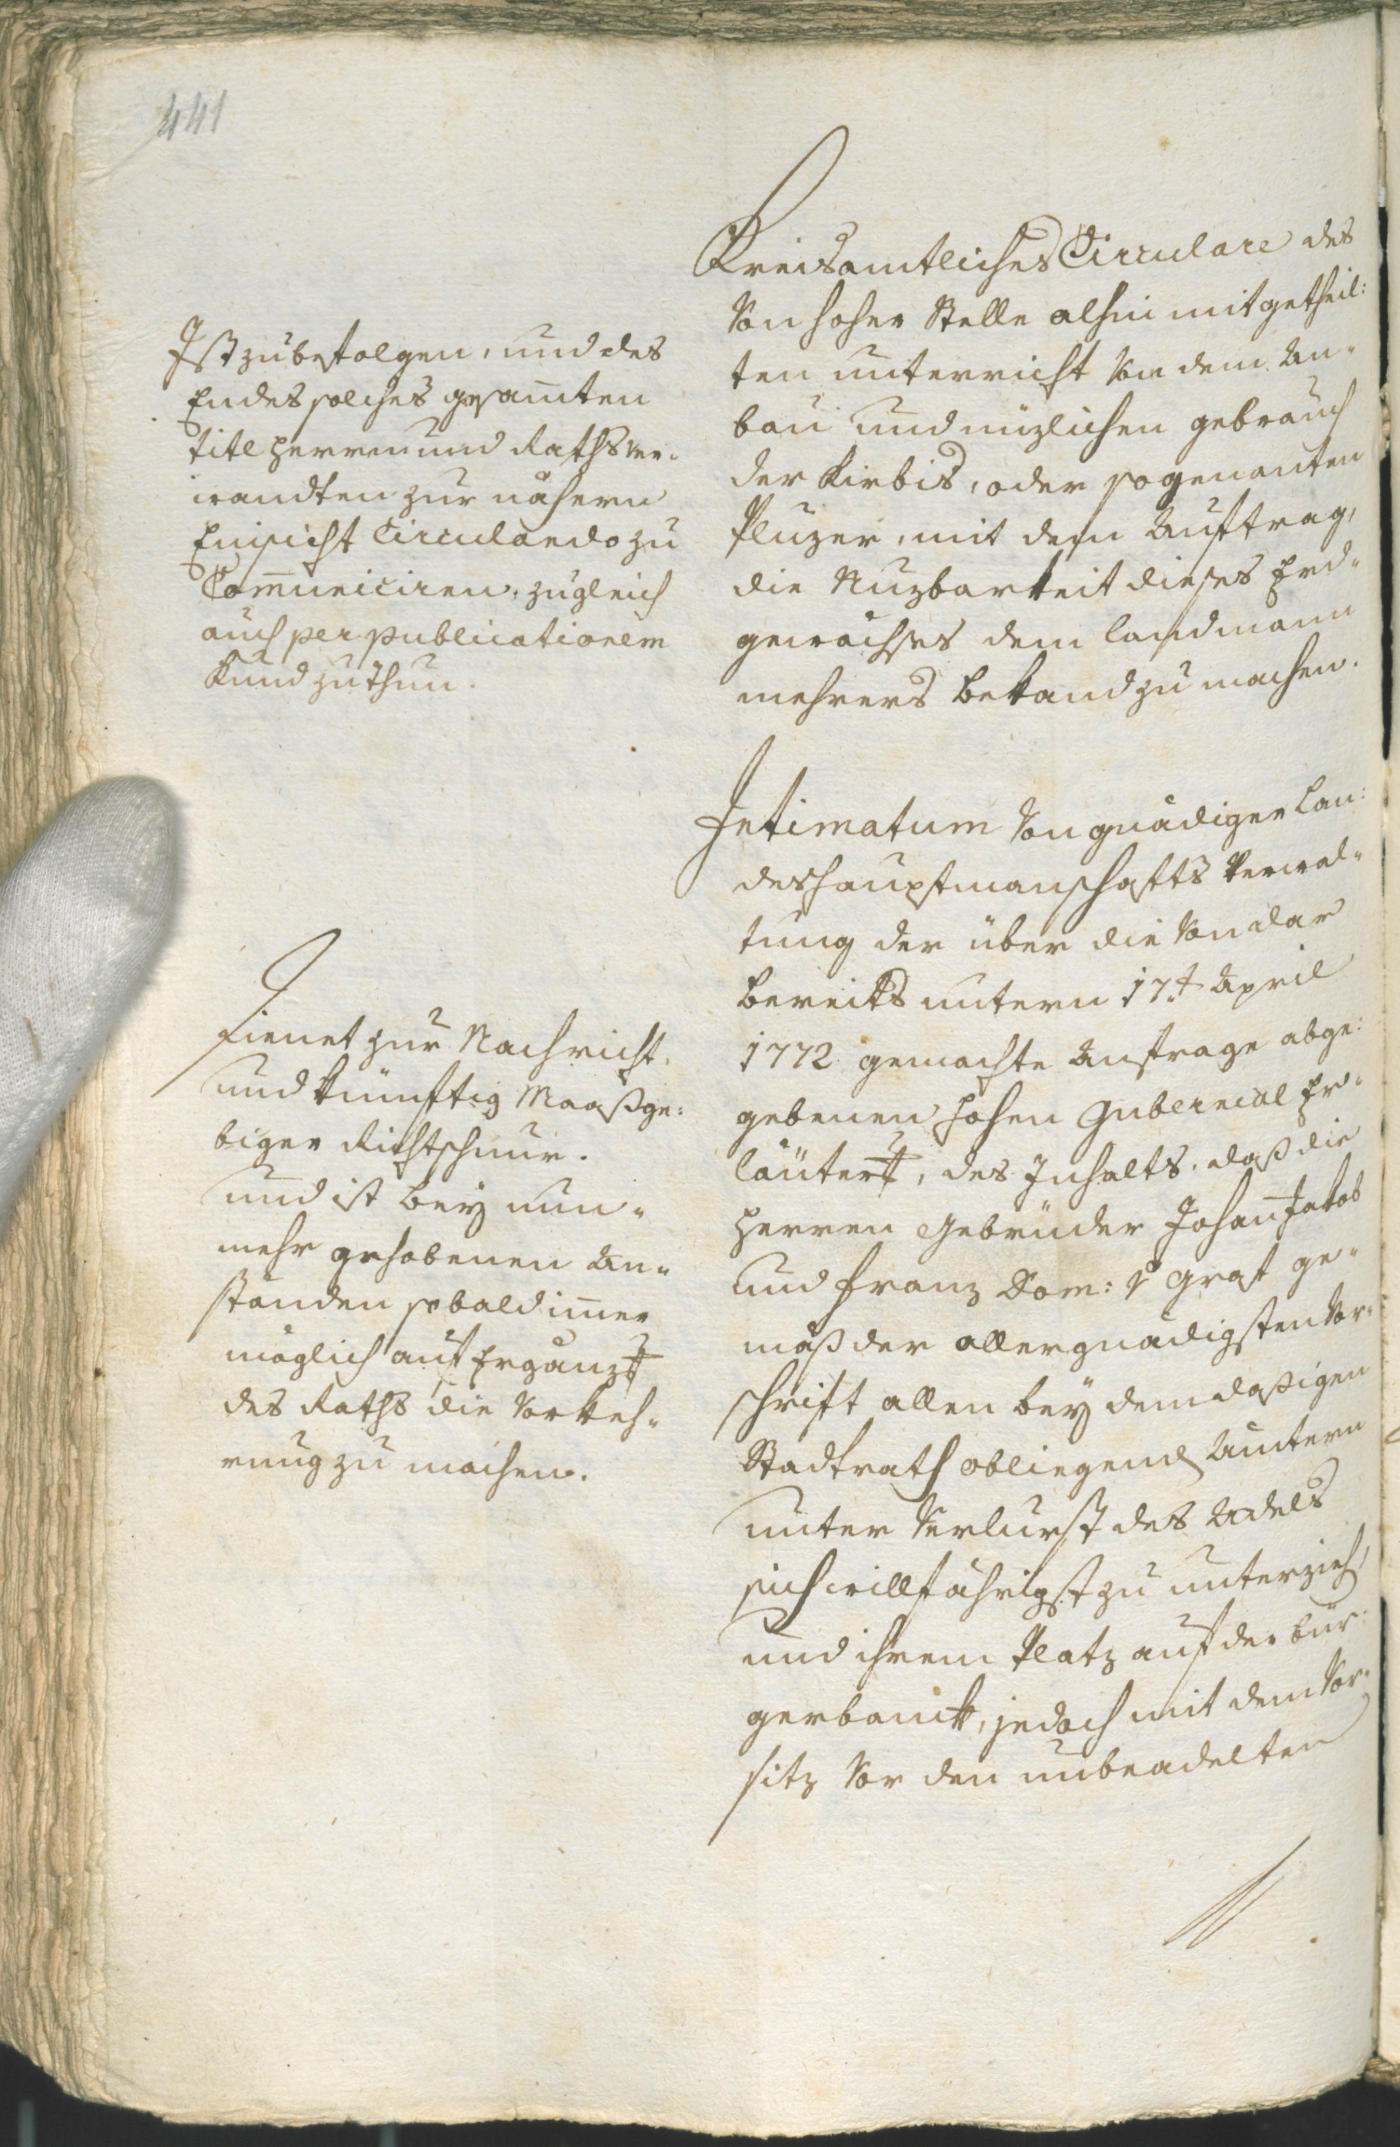 441
Kreisamtliches Circulare des
Von hoher Stelle alhin mitgetheil:
ten unterricht Von dem An-
bau und nüzlichen gebrauch
der Kirbis, oder sogenanten
Pluzer, mit dem Auftrag,
die Nuzbarkeit dieses Erd-
gewächses dem Landmann
mehrers bekand zu machen.
Ist zu befolgen, und des
Endes solches gesam̅ten
titl Herren und Rathsver-
wandten zur nähern
Einsicht Circulando zu
Com̅uniciren, zugleich
auch per publicationem
Kund zu thun.
Intimatum Von gnädiger Lan:
deshauptmanschafts Verwal-
tung der über die Von dar
bereits untern 17.t April
1772 gemachte Anfrage abge:
gebenen hohen Gubernial Er-
läuter, des Inhalts, daß die
Herren Gebrüder Johan̅ Jakob
und Franz Dom: Graf ge-
mäß der allergnädigsten Vor-
schrift allen bey dem dasigen
Stadtrath obliegend Ämtern
unter Verlurst des Adels
sich willfährigst zu unterzieh,
und ihrem Platz auf der bür:
gerbanck, jedoch mit dem Vor-
sitz Vor den unbeadelten
Dienet zur Nachricht,
und künftig Maaßge:
biger Richtschnur.
und ist bey nun-
mehr gehobenen An-
ständen sobald im̅er
möglich auf Ergänz
des Raths die Vorkeh-
rung zu machen.